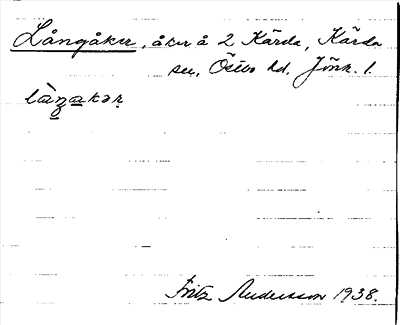 Långåker, åker å 2 Kärda, Kärda
sn, Östbo hd. Jönk. l.
Fritz Andersson 1938.